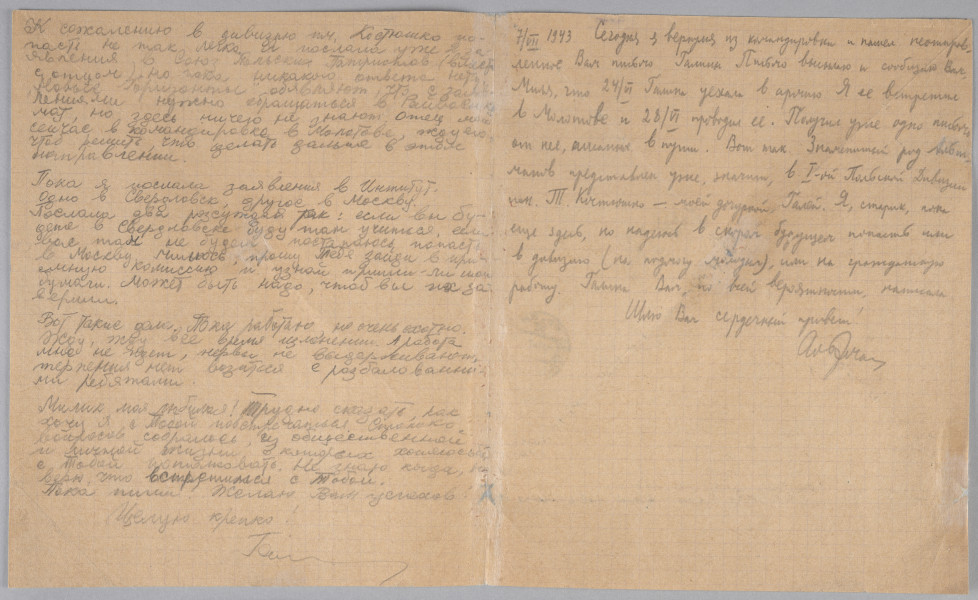 К сожалению в дивизию им. Костюшко по-
пасть не так легко. Я послала уже за-
явления в Союз Польских Патриотов (вместе
с отцом), но пока никакого ответа нет.
"Новые Горизонты" объявляют, что с заяв-
лениями нужно обращаться в Райвоенко-
мат, но здесь ничего не знают, отец мой
сейчас в командировке в Молотове, жду его
чтоб решить, что делать дальше в этом
направлении.
Пока я послала заявления в Институт.
Одно в Свердловск, другое в Москву.
Послала два, рассуждая так: если вы бу-
дете в Свердловске буду там учиться, если
вас там не будет, постараюсь попасть
в Москву. Милюсь, прошу Тебя зайди в при-
ёмную комиссию и узнай пришли-ли мои
бумаги. Может быть надо, чтоб вы их за-
верили.
Вот такие дела. Пока работаю, не очень охотно.
Жду, жду всё время изменений. А работа
мне не идет, нервы не выдерживают,
терпения нет возиться с разбалованны-
ми ребятами.
Милик моя любимая! Трудно сказать, как
хочу я с Тобой повстречаться. Столько
вопросов собралось, из общественной
и личной жизни, о которых хотелось бы
с Тобой потолковать. Не знаю когда, но
верю, что встретимся с Тобой.
Пока пиши! Желаю Вам успехов.
Целую крепко!
Гал
7/VII 1943 Сегодня я вернулся из командировки и нашел неотправ-
ленное Вам письмо Галины. Письмо вышлю и сообщаю Вам,
Миля, что 24/VI Галина уехала в армию. Я ее встретил
в Молотове и 28/VI проводил её. Получил уже одно письмо
от нея, писаное в пути. Вот так. Знаменитый род
представлен уже, значит, в I-ой Польской Дивизии
им. Т. Костюшко — моей дочуркой Галей. Я, старик, пока
еще здесь, но надеюсь в скором будущем попасть или
в дивизию (на подмогу молодым), или на гражданскую
работу. Галина Вам, по всей вероятности, написала
Шлю Вам сердечный привет!